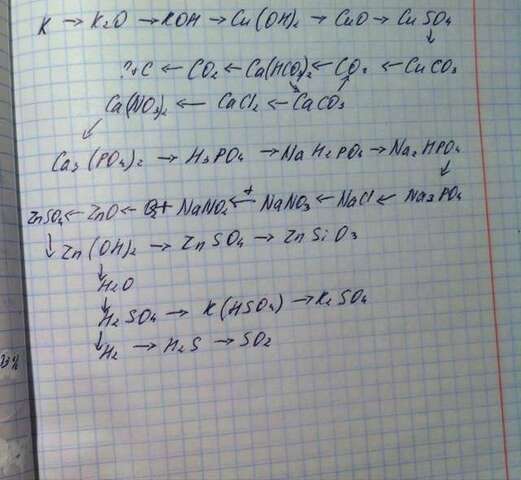 K → K₂O → KOH → Cu(OH)₂ → CuO → CuSO₄
↓
?+C ← CO₂ ← Ca(HCO₃)₂ ← CO₂ ← CuCO₃
Ca(NO₃)₂ ← CaCl₂ ← CaCO₃
Ca₃(PO₄)₂ → H₃PO₄ → NaH₂PO₄ → Na₂HPO₄
ZnSO₄ ← ZnO ← O₂+ NaNO₂ ← NaNO₃ ← NaCl ← Na₃PO₄
↓ Zn(OH)₂ → ZnSO₄ → ZnSiO₃
↓
H₂O
↓
H₂SO₄ → K(HSO₄) → K₂SO₄
↓
H₂ → H₂S → SO₂